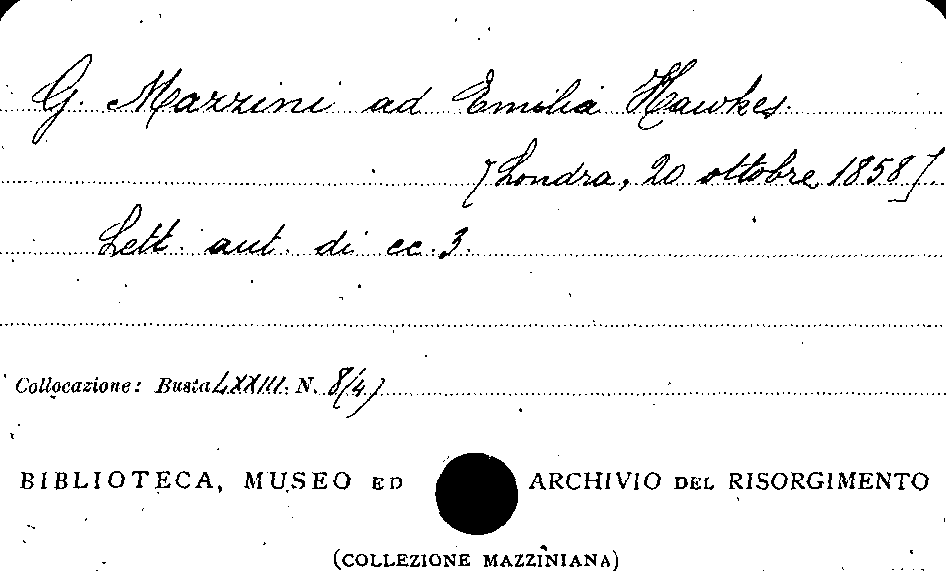 G. Mazzini ad Emilia Hawkes.
[Londra, 20 ottobre 1858].
Lett. aut. di cc. 3.
Collocazione: Busta LXXIII. N. 8(4)
BIBLIOTECA, MUSEO ED ARCHIVIO DEL RISORGIMENTO
(COLLEZIONE MAZZINIANA)